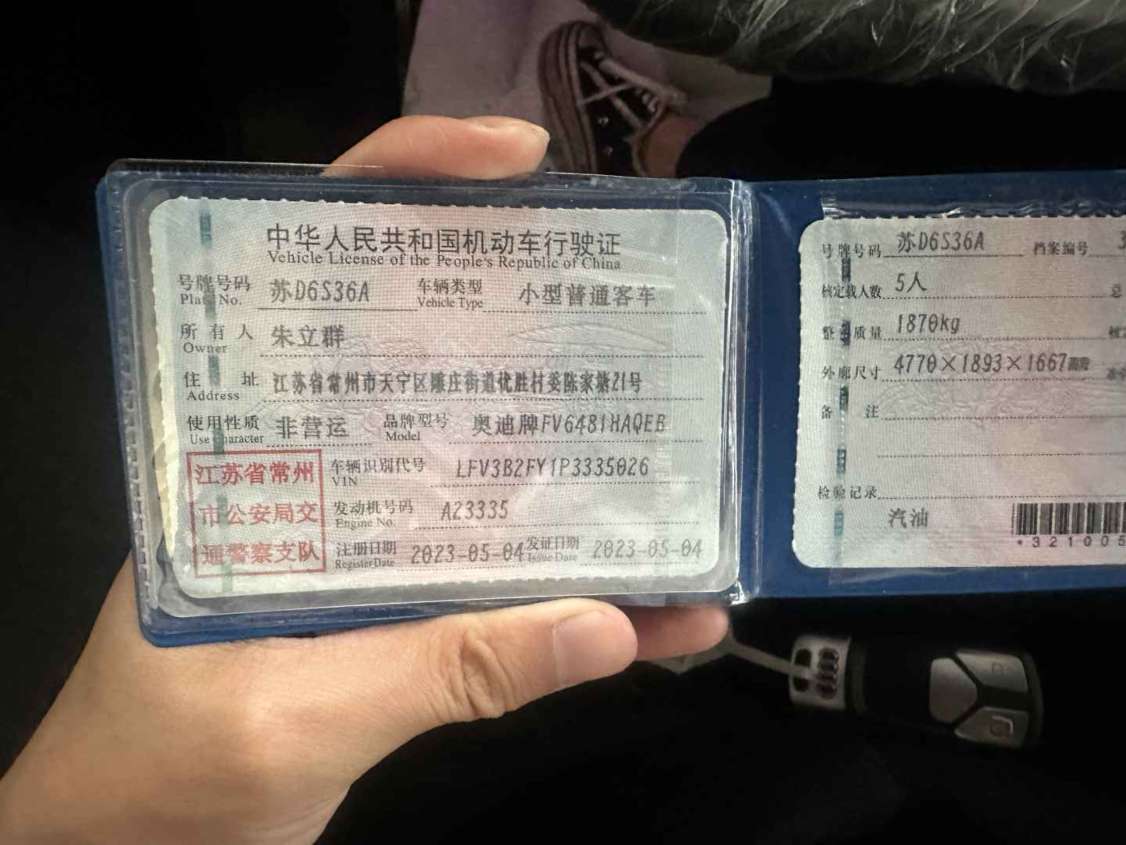 中华人民共和国机动车行驶证
Vehicle License of the People's Republic of China
号牌号码 苏D6S36A 车辆类型 小型普通客车
Plate No. Vehicle Type
所有人 朱立群
Owner
住址 江苏省常州市天宁区雕庄街道优胜村委陈家塘21号
Address
使用性质 非营运 品牌型号 奥迪牌FV6481HAQEB
Use Character Model
江苏省常州
市公安局交
通警察支队
车辆识别代号 LFV3B2FY1P3335026
VIN
发动机号码 A23335
Engine No.
注册日期 2023-05-04 发证日期 2023-05-04
Register Date Issue Date
号牌号码 苏D6S36A 档案编号 3
核定载人数 5人 总
整备质量 1870kg 核
外廓尺寸 4770×1893×1667mm
备注
检验记录
汽油
*321005